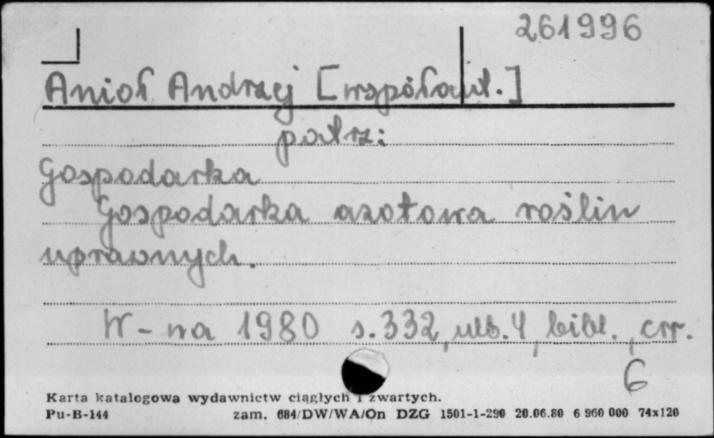 261996
Anioł Andrzej [współaut.]
patrz:
Gospodarka
Gospodarka azotowa roślin
uprawnych.
W-wa 1980 s. 332, ulb. 4, bibl., err.
6
Karta katalogowa wydawnictw ciągłych i zwartych.
Pu-B-144 zam. 684/DW/WA/On DZG 1501-1-290 20.06.80 6 960 000 74x120